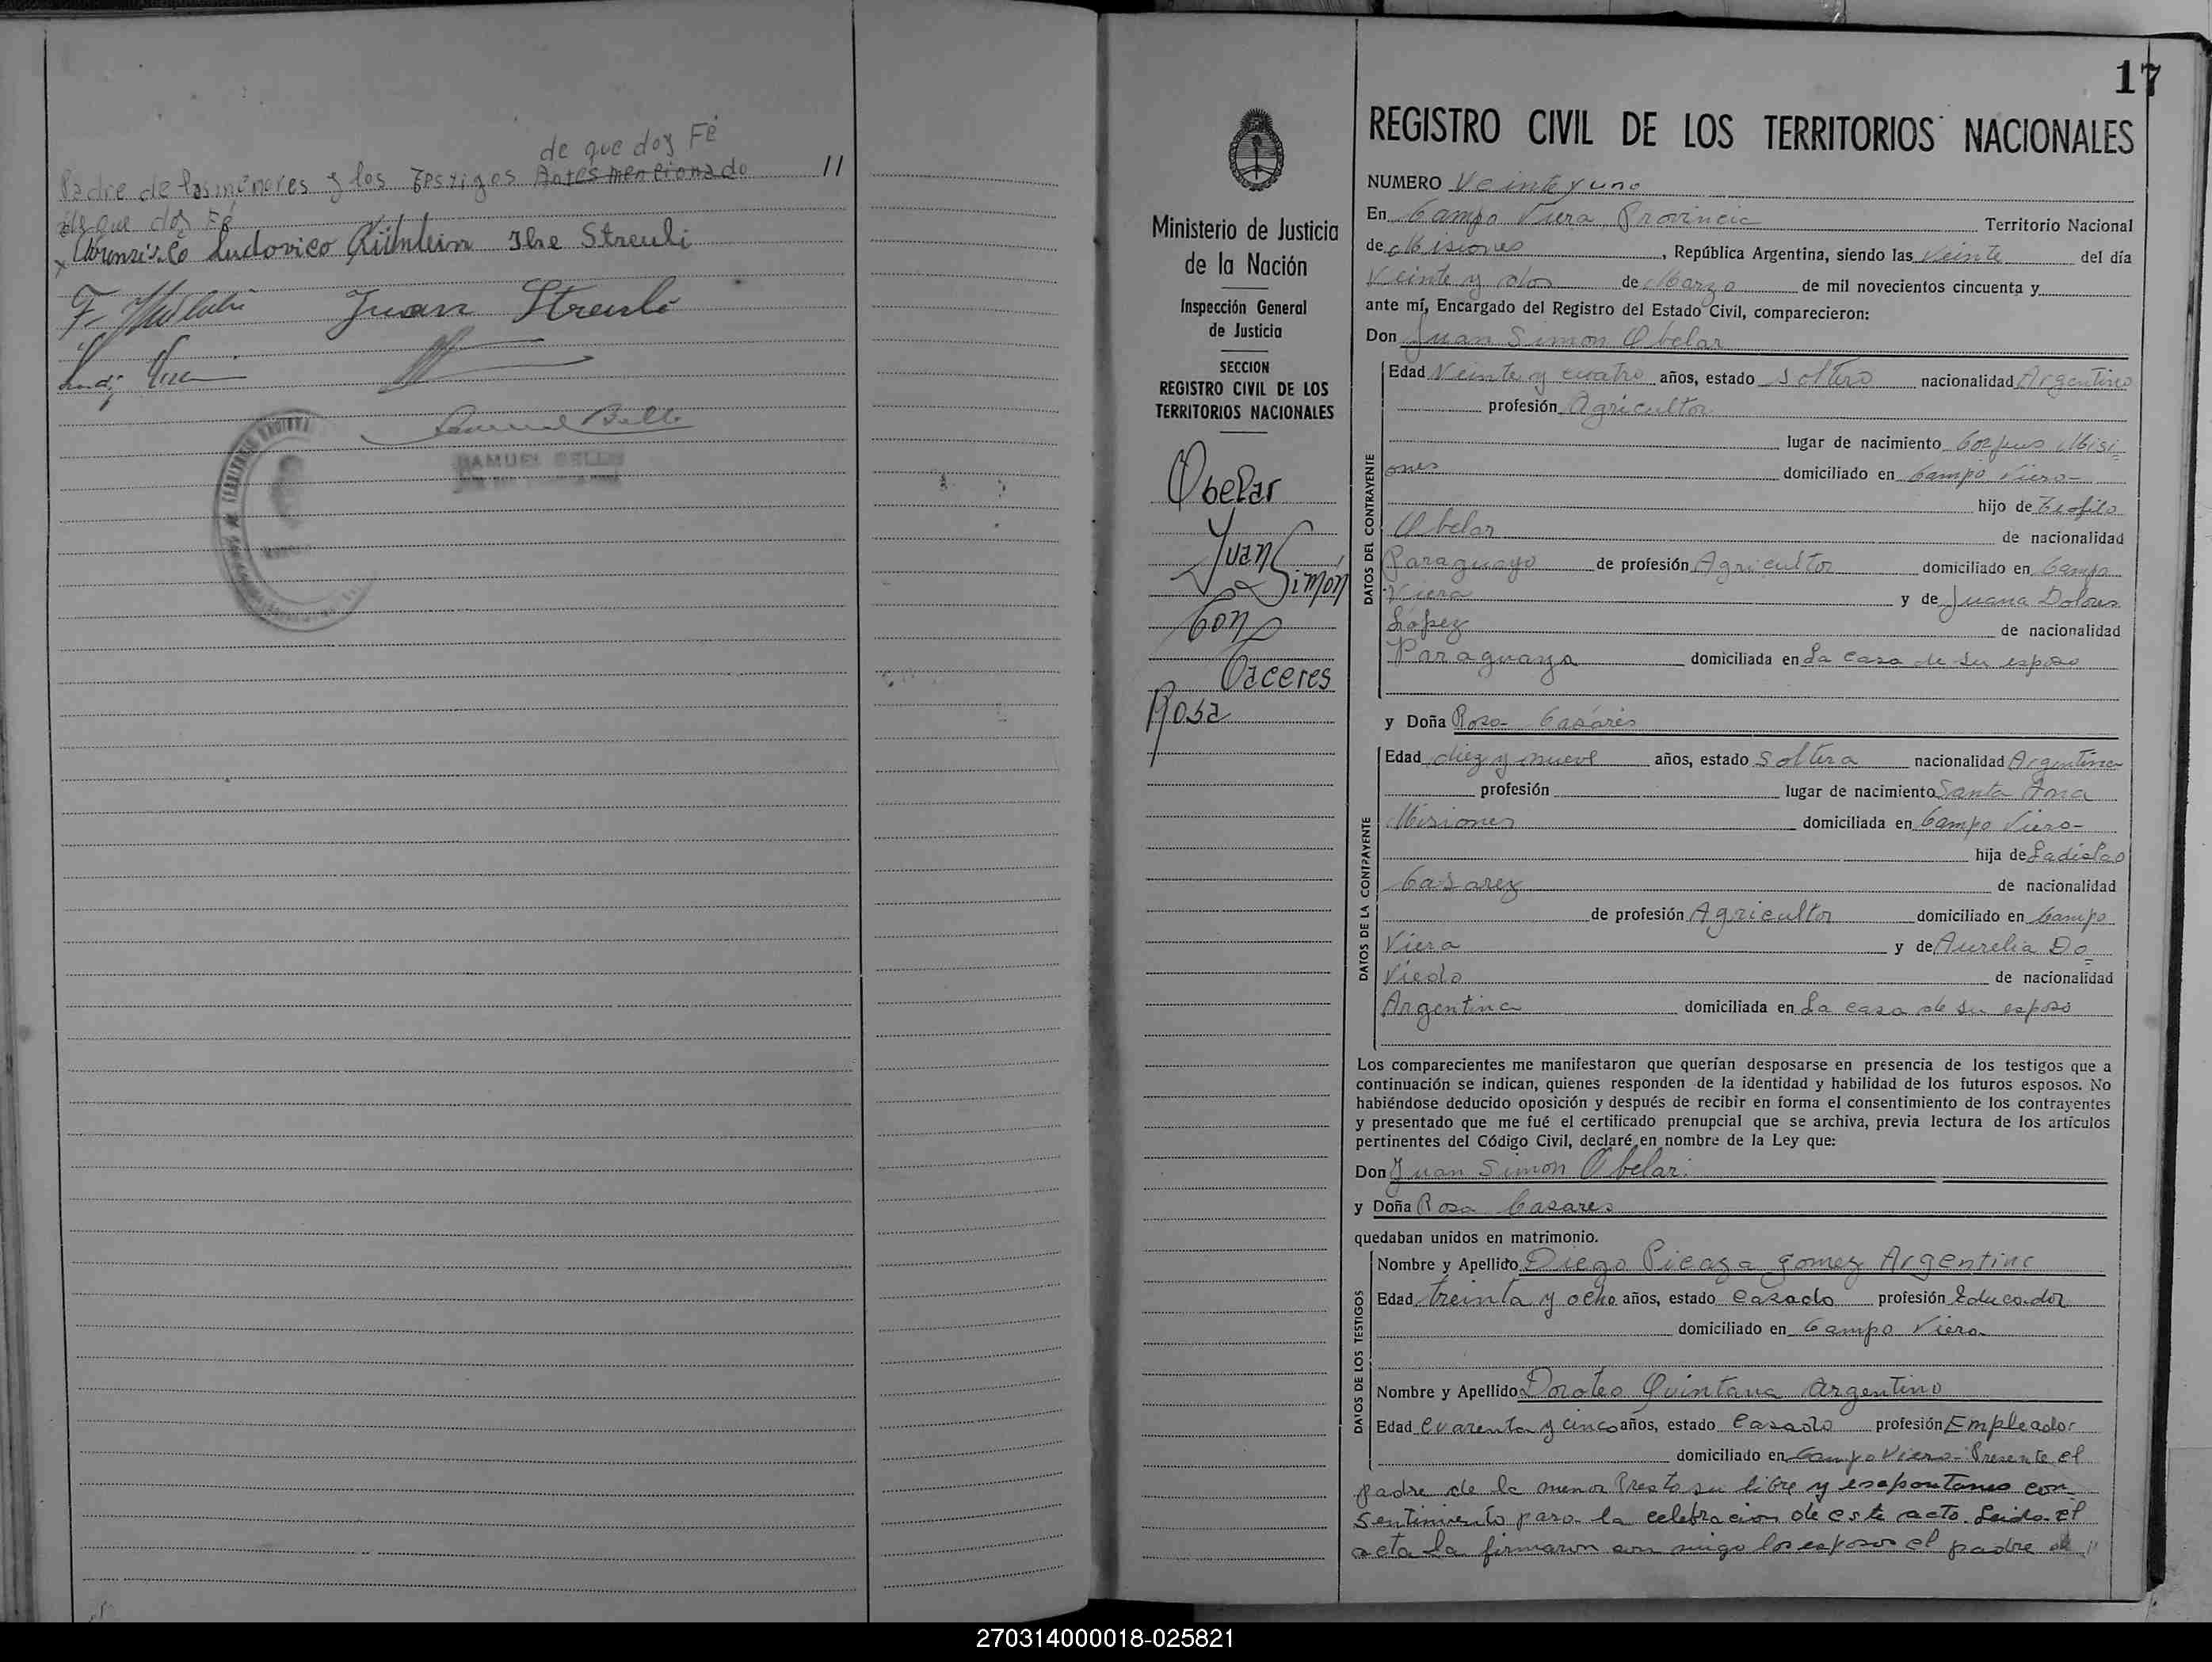 de que doy Fé
Padre de los menores y los Testigos Antes mencionado //
de que doy Fé
Ludovico Kühnlein Ilse Streuli
Juan Streuli
Samuel Bello
SAMUEL BELLO
17
REGISTRO CIVIL DE LOS TERRITORIOS NACIONALES
Ministerio de Justicia
de la Nación
Inspección General
de Justicia
SECCION
REGISTRO CIVIL DE LOS
TERRITORIOS NACIONALES
Obelar
Juan
Simón
Con
Caceres
Rosa
NUMERO Veinte y uno
En Campo Viera Provincia Territorio Nacional
de Misiones, República Argentina, siendo las Veinte del día
Veinte y dos de Marzo de mil novecientos cincuenta y
ante mí, Encargado del Registro del Estado Civil, comparecieron:
Don Juan Simon Obelar
DATOS DEL CONTRAYENTE
Edad Veinte y cuatro años, estado Soltero nacionalidad Argentino
profesión Agricultor
lugar de nacimiento Corpus Misi=
ones domiciliado en Campo Viera-
hijo de Teofilo
Obelar de nacionalidad
Paraguayo de profesión Agricultor domiciliado en Campo
Viera y de Juana Dolores
López de nacionalidad
Paraguaya domiciliada en La casa de su esposo
y Doña Rosa Casares
DATOS DE LA CONTRAYENTE
Edad diez y nueve años, estado Soltera nacionalidad Argentina
profesión lugar de nacimiento Santa Ana
Misiones domiciliada en Campo Viera-
hija de Ladislao
Casarez de nacionalidad
de profesión Agricultor domiciliado en Campo
Viera y de Aurelia Do=
Viedo de nacionalidad
Argentina domiciliada en La casa de su esposo
Los comparecientes me manifestaron que querían desposarse en presencia de los testigos que a
continuación se indican, quienes responden de la identidad y habilidad de los futuros esposos. No
habiéndose deducido oposición y después de recibir en forma el consentimiento de los contrayentes
y presentado que me fué el certificado prenupcial que se archiva, previa lectura de los artículos
pertinentes del Código Civil, declaré en nombre de la Ley que:
Don Juan Simon Obelar.
y Doña Rosa Casares
quedaban unidos en matrimonio.
DATOS DE LOS TESTIGOS
Nombre y Apellido Diego Picaza gomez Argentino
Edad treinta y ocho años, estado Casado profesión Educador
domiciliado en Campo Viera
Nombre y Apellido Doroteo Quintana Argentino
Edad Cuarenta y cinco años, estado Casado profesión Empleado
domiciliado en Campo Viera- Presente el
padre de la menor Presto su libre y esapontaneo con
sentimiento para la celebracion de este acto. Leida el
acta la firmaron con migo los esposos el padre de //
270314000018-025821